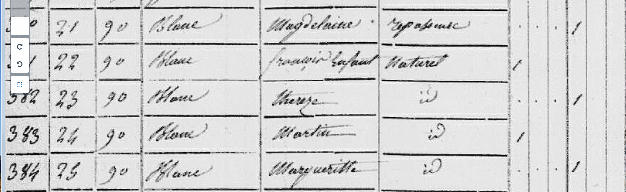 21 90 Blanc Magdelaine repasseuse 1
22 90 Blanc françois Enfant Naturel 1
382 23 90 Blanc Thereze id 1
383 24 90 Blanc Martin id 1
384 25 90 Blanc Margueritte id 1